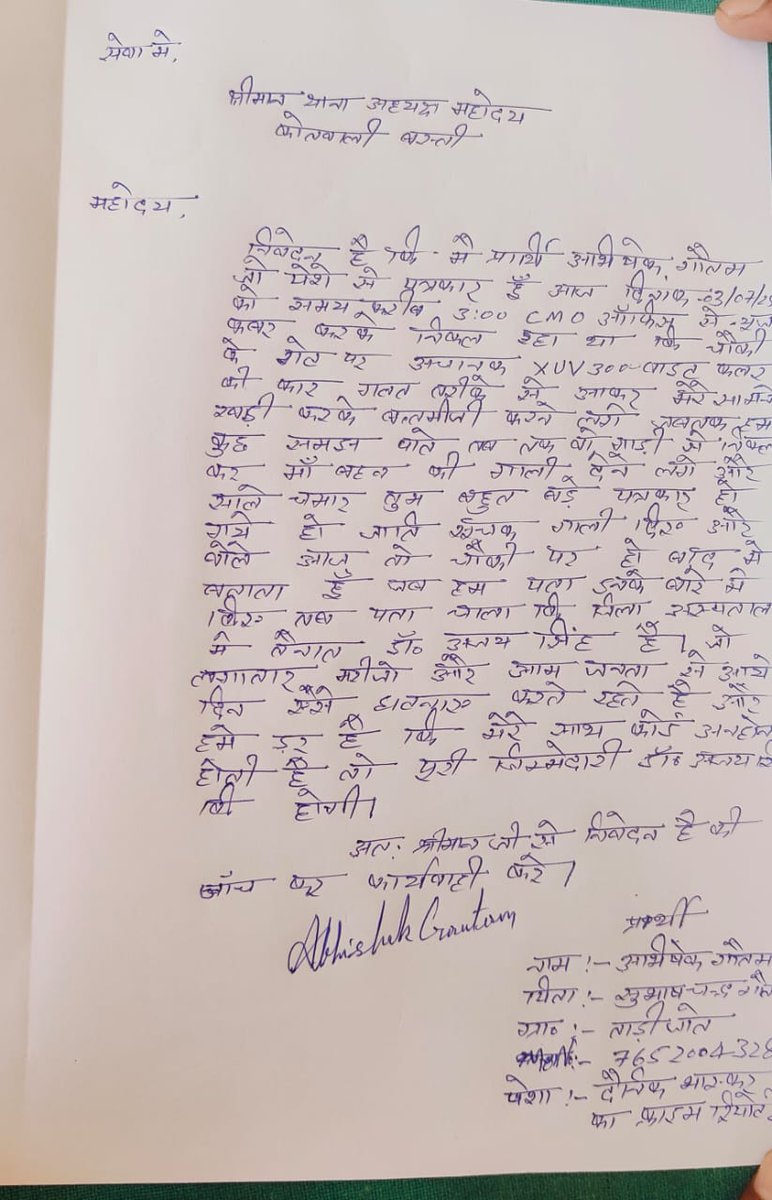 सेवा मे,
श्रीमान थाना अध्यक्ष महोदय
कोतवाली बस्ती
महोदय,
निवेदन है कि मै प्रार्थी अभिषेक गौतम
जो पेशे से पत्रकार हूँ आज दिनांक 03/07/25
को समय करीब 3:00 CMO ऑफिस से न्यूज
कवर करके निकल रहा था कि चौकी
के गेट पर अचानक XUV 300 वाइट कलर
की कार गलत तरीके से आकर मेरे सामने
खड़ी करके बत्तमीजी करने लगे जबतक हम
कुछ समझ पाते तब तक वो गाडी से निकल
कर माँ बहन की गाली देने लगे और
साले चमार तुम बहुत बड़े पत्रकार हो
गये हो जाति सूचक गाली दिए और
बोले आज तो चौकी पर हो बाद मे
बताता हूँ जब हम पता इनके बारे मे
किए तब पता चाला कि जिला अस्पताल
मे तैनात डॉ० अजय सिंह है। जो
लगातार मरीजो और आम जनता से आये
दिन ऐसे घटनाए करते रहते है और
हमे डर है कि मेरे साथ कोई अनहोनी
होती है तो पूरी जिम्मेदारी डॉ० अजय
कि होगी।
अतः श्रीमान जी से निवेदन है की
जाँच कर कार्यवाही करे।
Abhishek Goutam
प्रार्थी
नाम :- अभिषेक गौतम
पिता :- सुभाष चन्द्र गौतम
ग्रा० :- ताड़ीजोत
:- 7652004328
पेशा :- दैनिक भास्कर
का क्राइम रिपोर्टर